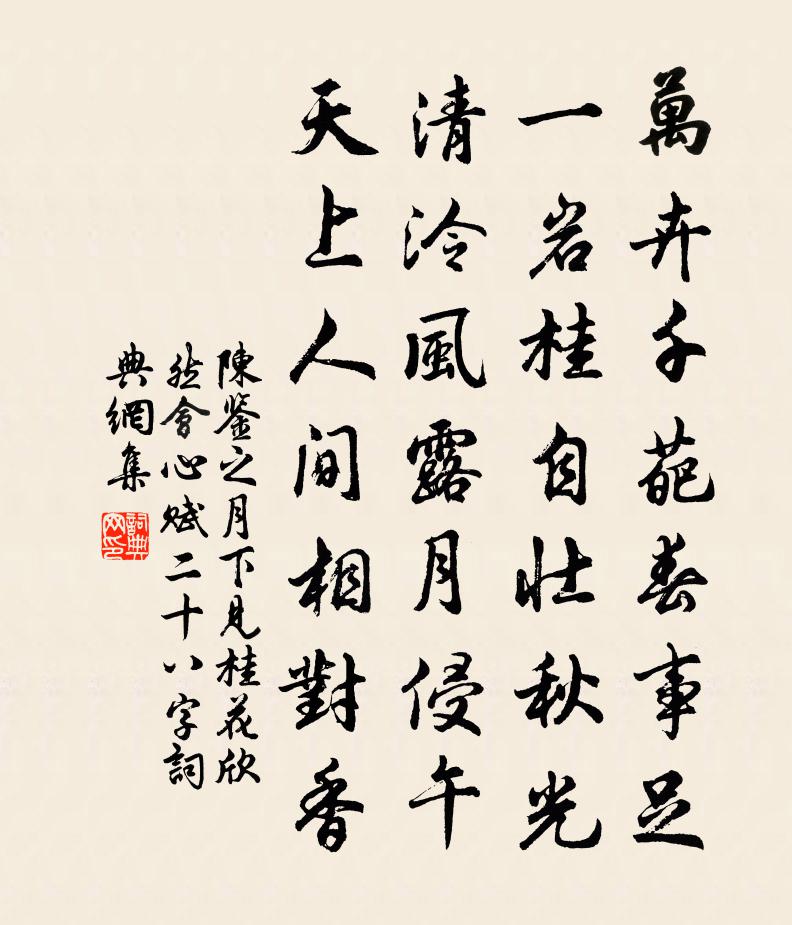 萬卉千葩春事足
一岩桂自壯秋光
清泠風露月侵午
天上人间相對香
陳鑒之月下見桂花欣
然會心賦二十八字詞
典網集
詞典
网印